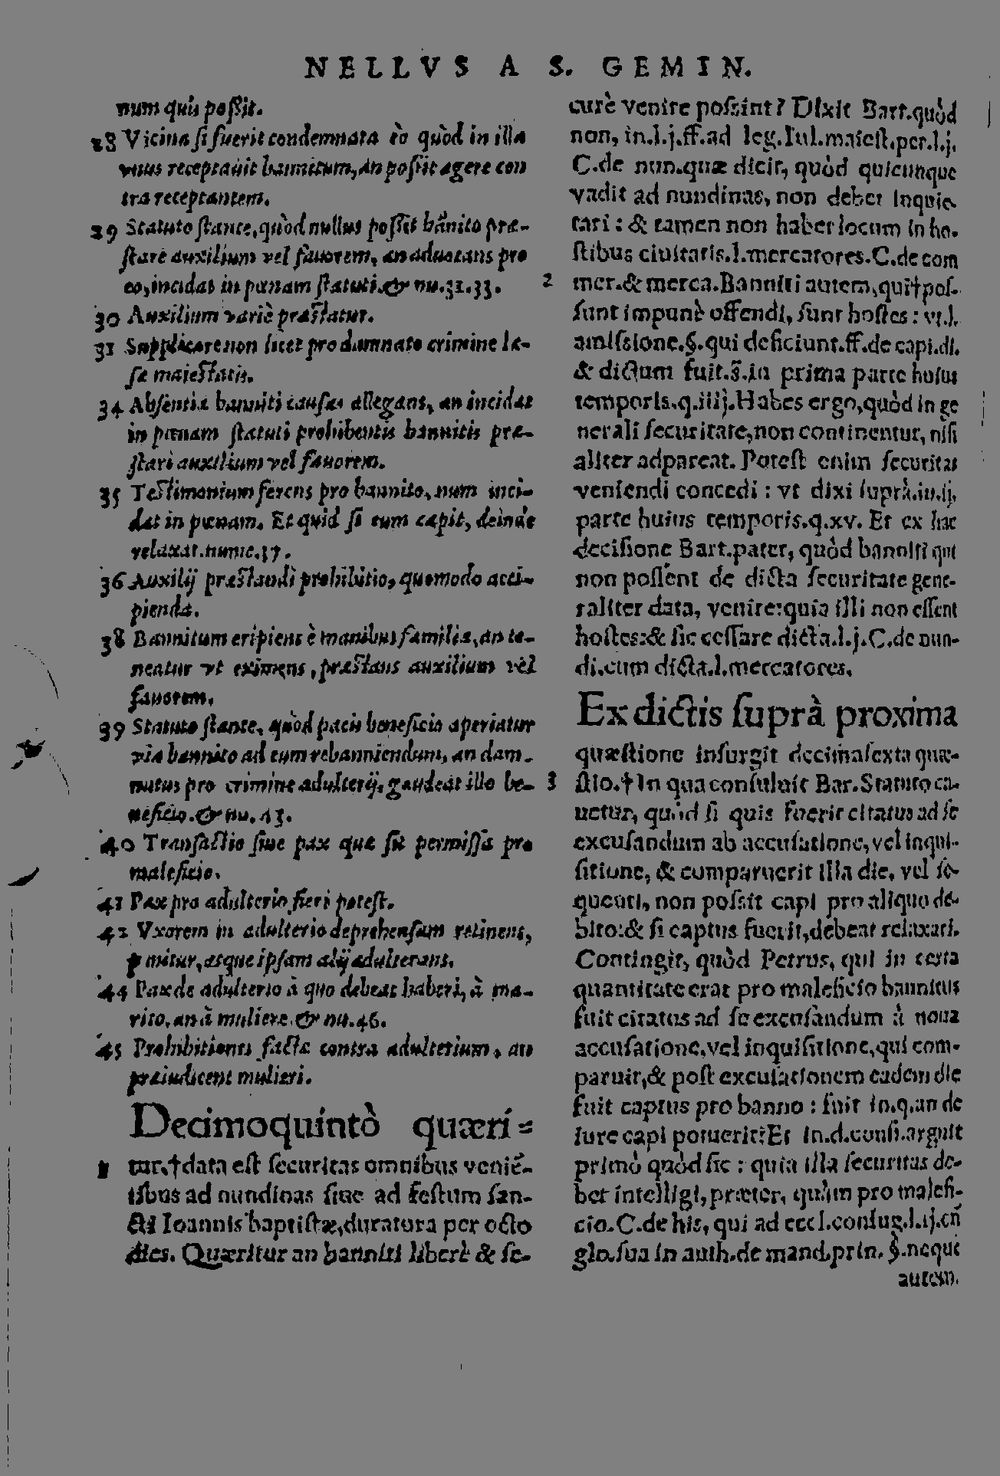 NELLVS A S. GEMIN.
num quis poſſit.
28 Vicina ſi fuerit condemnata eò quòd in illa
vnus receptauit bannitum, an poſſit agere con
tra receptantem.
29 Statuto ſtante, quòd nullus poſſit bānito præ-
ſtare auxilium vel fauorem, an aduocans pro
eo, incidat in pœnam ſtatuti. & nu. 32. 33.
30 Auxilium variè præſtatur.
31 Supplicare non licet pro damnato crimine læ-
ſæ maieſtatis.
34 Abſentiæ banniti cauſas allegans, an incidat
in pœnam ſtatuti prohibentis bannitis præ-
ſtari auxilium vel fauorem.
35 Teſtimonium ferens pro bannito, num inci-
dat in pœnam. Et quid ſi eum capit, deinde
relaxat. nume. 37.
36 Auxilij præſtandi prohibitio, quomodo acci-
pienda.
38 Bannitum eripiens è manibus familiæ, an te-
neatur vt eximens, præſtans auxilium vel
fauorem.
39 Statuto ſtante, quòd pacis beneficio aperiatur
via bannito ad eum rebanniendum, an dam-
natus pro crimine adulterij, gaudeat illo be-
neficio. & nu. 43.
40 Tranſactio ſiue pax quæ ſit permiſſa pro
maleficio.
41 Pax pro adulterio fieri poteſt.
42 Vxorem in adulterio deprehenſam retinens,
punitur, atque ipſam alij adulterans.
44 Pax de adulterio à quo debeat haberi, à ma-
rito, an à muliere. & nu. 46.
45 Prohibitiones factæ contra adulterium, an
præiudicent mulieri.
Decimoquintò quæri-
1 tur. †data eſt ſecuritas omnibus veniē-
tibus ad nundinas ſiue ad feſtum ſan-
cti Ioannis baptiſtæ, duratura per octo
dies. Quæritur an banniti liberè & ſe-
curè venire poſsint? Dixit Bart. quòd
non, in. l. j. ff. ad leg. Iul. maieſt. per. l. j.
C. de nun. quæ dicit, quòd quicunque
vadit ad nundinas, non debet inquie-
tari: & tamen non habet locum in ho-
ſtibus ciuitatis. l. mercatores. C. de com
2 mer. & merca. Banniti autem, qui†poſ-
ſunt impunè offendi, ſunt hoſtes: vt. l.
amiſsione. §. qui deficiunt. ff. de capi. di.
& dictum fuit. s̄. in prima parte huius
temporis. q. iiij. Habes ergo, quòd in ge
nerali ſecuritate, non continentur, niſi
aliter adpareat. Poteſt enim ſecuritas
veniendi concedi: vt dixi ſuprà. in. ij.
parte huius temporis. q. xv. Et ex hac
deciſione Bart. patet, quòd banniti qui
non poſſent de dicta ſecuritate gene-
raliter data, venire: quia illi non eſſent
hoſtes: & ſic ceſſare dicta. l. j. C. de nun-
di. cum dicta. l. mercatores.
Ex dictis ſuprà proxima
quæſtione inſurgit decimaſexta quæ-
3 ſtio. †In qua conſuluit Bar. Statuto ca-
uetur, quòd ſi quis fuerit citatus ad ſe
excuſandum ab accuſatione, vel inqui-
ſitione, & comparuerit illa die, vel ſe-
quenti, non poſsit capi pro aliquo de-
bito: & ſi captus fuerit, debeat relaxari.
Contingit, quòd Petrus, qui in certa
quantitate erat pro maleficio bannitus
fuit citatus ad ſe excuſandum à noua
accuſatione, vel inquiſitione, qui com-
paruit, & poſt excuſationem eadem die
fuit captus pro banno: fuit in. q. an de
iure capi potuerit? Et in. d. conſi. arguit
primò quòd ſic: quia illa ſecuritas de-
bet intelligi, præter, quàm pro malefi-
cio. C. de his, qui ad eccl. confug. l. ij. cū
glo. ſua in auth. de mand. prin. §. neque
autem.